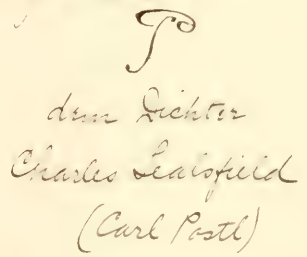 P
dem Dichter
Charles Sealsfield
(Carl Postl)